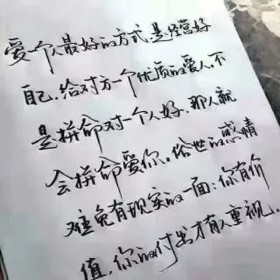 爱一个人最好的方式,是经营好
自己,给对方一个优质的爱人,不
是拼命对一个人好,那人就
会拼命爱你,俗世的感情
难免有现实的一面:你有价
值,你的付出才有人重视.